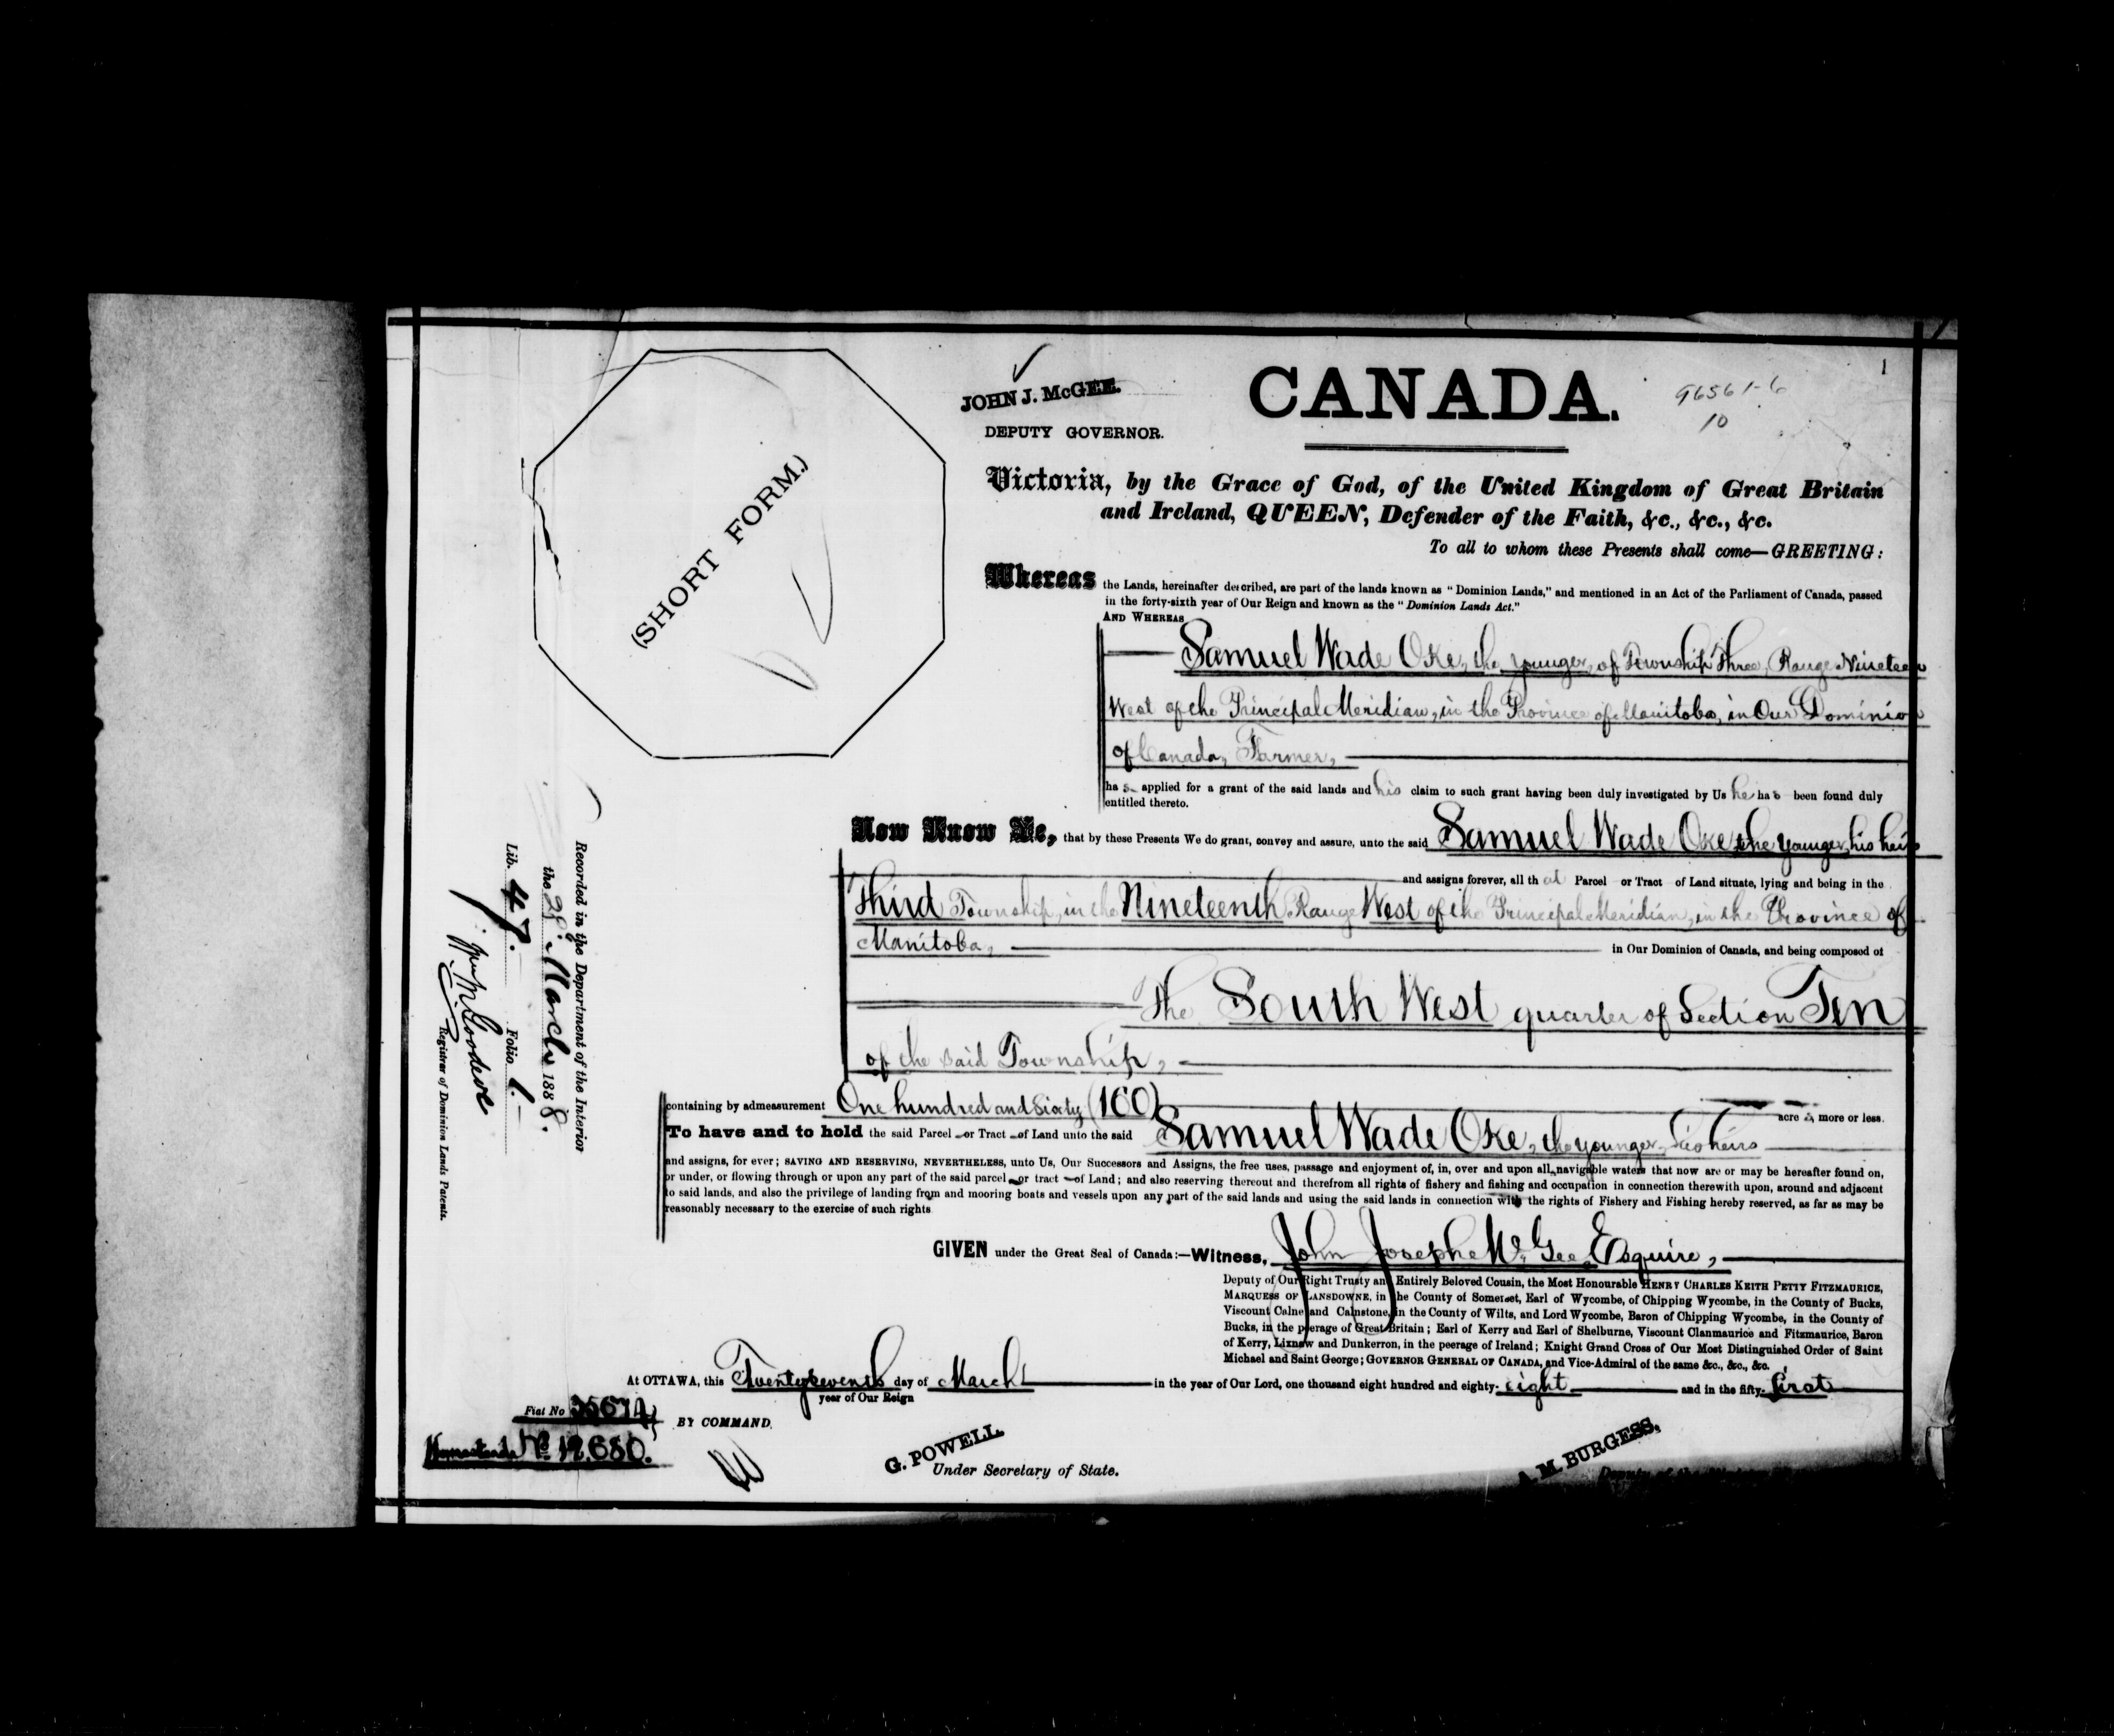 JOHN J. McGEE.
DEPUTY GOVERNOR.
CANADA.
96561-6
10
1
(SHORT FORM.)
Victoria, by the Grace of God, of the United Kingdom of Great Britain
and Ireland, QUEEN, Defender of the Faith, &c., &c., &c.
To all to whom these Presents shall come—GREETING:
Whereas the Lands, hereinafter described, are part of the lands known as "Dominion Lands," and mentioned in an Act of the Parliament of Canada, passed
in the forty-sixth year of Our Reign and known as the "Dominion Lands Act."
AND WHEREAS
Samuel Wade Oke, the younger, of Township Three, Range Nineteen
West of the Principal Meridian, in the Province of Manitoba, in Our Dominion
of Canada, Farmer,
has applied for a grant of the said lands and his claim to such grant having been duly investigated by Us he has been found duly
entitled thereto.
Now Know Ye, that by these Presents We do grant, convey and assure, unto the said Samuel Wade Oke, the younger, his heirs
and assigns forever, all that Parcel or Tract of Land situate, lying and being in the
Third Township, in the Nineteenth Range West of the Principal Meridian, in the Province of
Manitoba, in Our Dominion of Canada, and being composed of
The South West quarter of Section Ten
of the said Township,
containing by admeasurement One hundred and sixty (160) acres more or less.
To have and to hold the said Parcel or Tract of Land unto the said Samuel Wade Oke, the younger, his heirs
and assigns, for ever; SAVING AND RESERVING, NEVERTHELESS, unto Us, Our Successors and Assigns, the free uses, passage and enjoyment of, in, over and upon all navigable waters that now are or may be hereafter found on,
or under, or flowing through or upon any part of the said parcel or tract of Land; and also reserving thereout and therefrom all rights of fishery and fishing and occupation in connection therewith upon, around and adjacent
to said lands, and also the privilege of landing from and mooring boats and vessels upon any part of the said lands and using the said lands in connection with the rights of Fishery and Fishing hereby reserved, as far as may be
reasonably necessary to the exercise of such rights
GIVEN under the Great Seal of Canada:—Witness, John Joseph McGee Esquire,
Deputy of Our Right Trusty and Entirely Beloved Cousin, the Most Honourable HENRY CHARLES KEITH PETTY FITZMAURICE,
MARQUESS OF LANSDOWNE, in the County of Somerset, Earl of Wycombe, of Chipping Wycombe, in the County of Bucks,
Viscount Calne and Calnstone, in the County of Wilts, and Lord Wycombe, Baron of Chipping Wycombe, in the County of
Bucks, in the peerage of Great Britain; Earl of Kerry and Earl of Shelburne, Viscount Clanmaurice and Fitzmaurice, Baron
of Kerry, Lixnaw and Dunkerron, in the peerage of Ireland; Knight Grand Cross of Our Most Distinguished Order of Saint
Michael and Saint George; GOVERNOR GENERAL OF CANADA, and Vice-Admiral of the same &c., &c., &c.
At OTTAWA, this Twenty seventh day of March in the year of Our Lord, one thousand eight hundred and eighty-eight and in the fifty-first
year of Our Reign
Fiat No 35674
BY COMMAND.
Homestead No. 19.680.
G. POWELL.
Under Secretary of State.
A. M. BURGESS,
Recorded in the Department of the Interior
the 28th March 1888.
Lib. 47. Folio 1.
Wm M Goodeve
Registrar of Dominion Lands Patents.